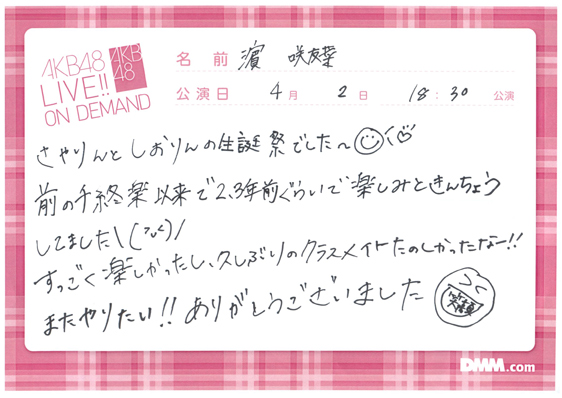 AKB48
LIVE!!
ON DEMAND
AKB
48
名前 濵 咲友菜
公演日 4月 2日 18:30 公演
さやりんとしおりんの生誕祭でした〜
前の千終楽以来で2,3年前ぐらいで楽しみときんちょう
してました\( )/
すっごく楽しかったし、久しぶりのクラスメイトたのしかったなー!!
またやりたい!! ありがとうございました
DMM.com